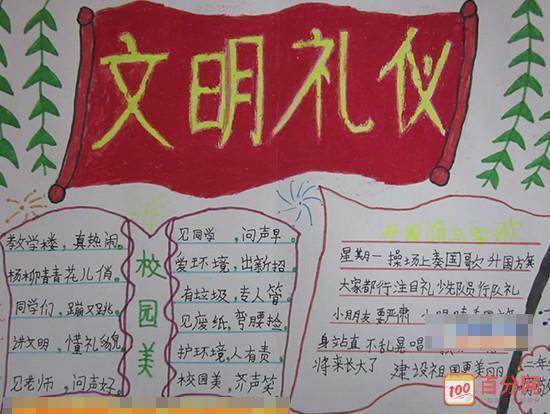 文明礼仪
校园美
教学楼，真热闹。
杨柳青青花儿俏。
同学们，蹦又跳
讲文明，懂礼貌
见老师，问声好。
见同学，问声早。
爱环境，出新招
有垃圾，专人管。
见废纸，弯腰捡
护环境，人有责。
校园美，齐声笑。
升国旗
歌
星期一 操场上奏国歌升国旗
大家都行注目礼少先队员行队礼
小朋友要严肃
身站直 不乱晃
将来长大了 建设祖国更美丽
二年
100 百分网